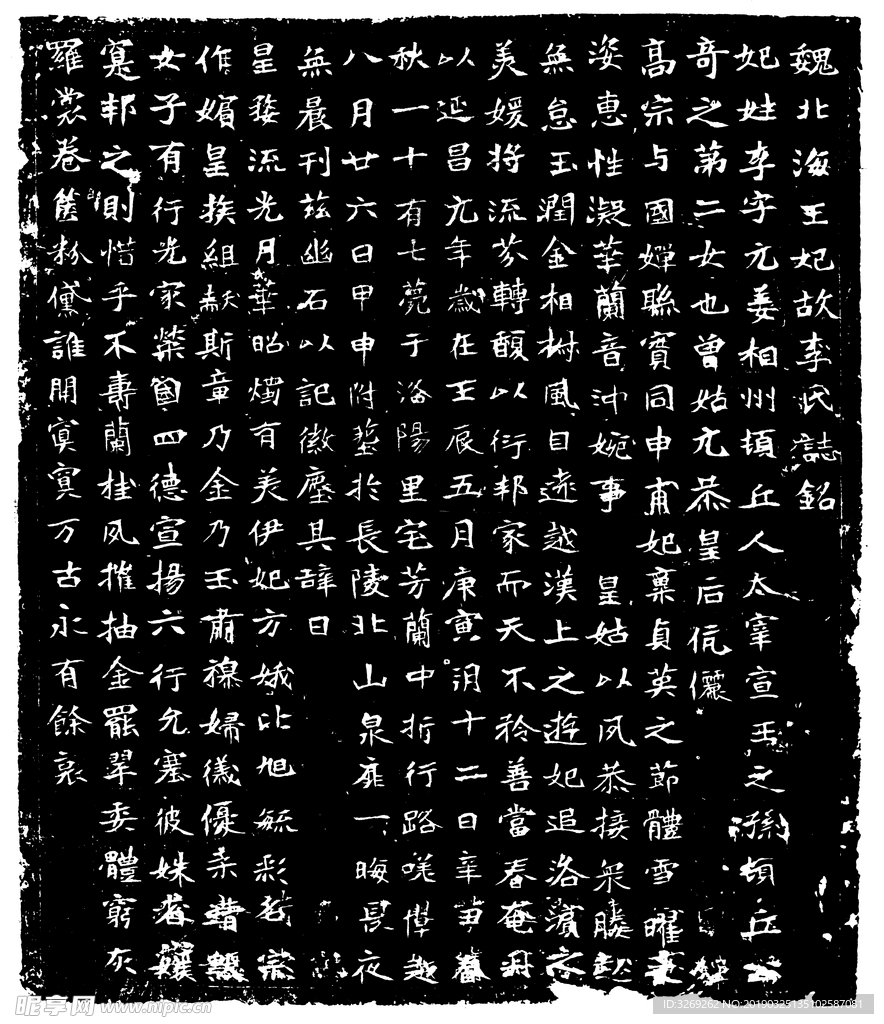 魏北海王妃故李氏誌銘
妃姓李字元姜相州頓丘人太宰宣王之孫頓丘公
奇之第二女也曾姑元恭皇后伉儷
高宗与國嬋聯實同申甫妃稟貞英之節體雪曜之
姿惠性凝華蘭音沖婉事 皇姑以夙恭接衆媵
無怠玉潤金相樹風目遠越漢上之遊妃追洛濱之
美媛將流芬轉馥以衍邦家而天不矜善當春奄
以延昌元年歲在壬辰五月庚寅朔十二日辛丑春
秋一十有七薨于海陽里宅芳蘭中折行路嗟慟越
八月廿六日甲申附塟於長陵北山泉扉一晦長夜
無晨刊兹幽石以記徽塵其辞曰
星婺流光月華昭燭有美伊妃方娥比旭毓彩
宗
作嬪皇族組赫斯章乃金乃玉肅穆婦儀優柔
女子有行光家榮國四德宣揚六行允塞彼姝者
寔邦之則惜乎不壽蘭桂夙摧抽金罷翠委體窮灰
羅裳卷篋粉黛誰開冥冥万古永有餘哀
昵享网 www.nipic.cn
ID:3269262 NO:20190325135102587081